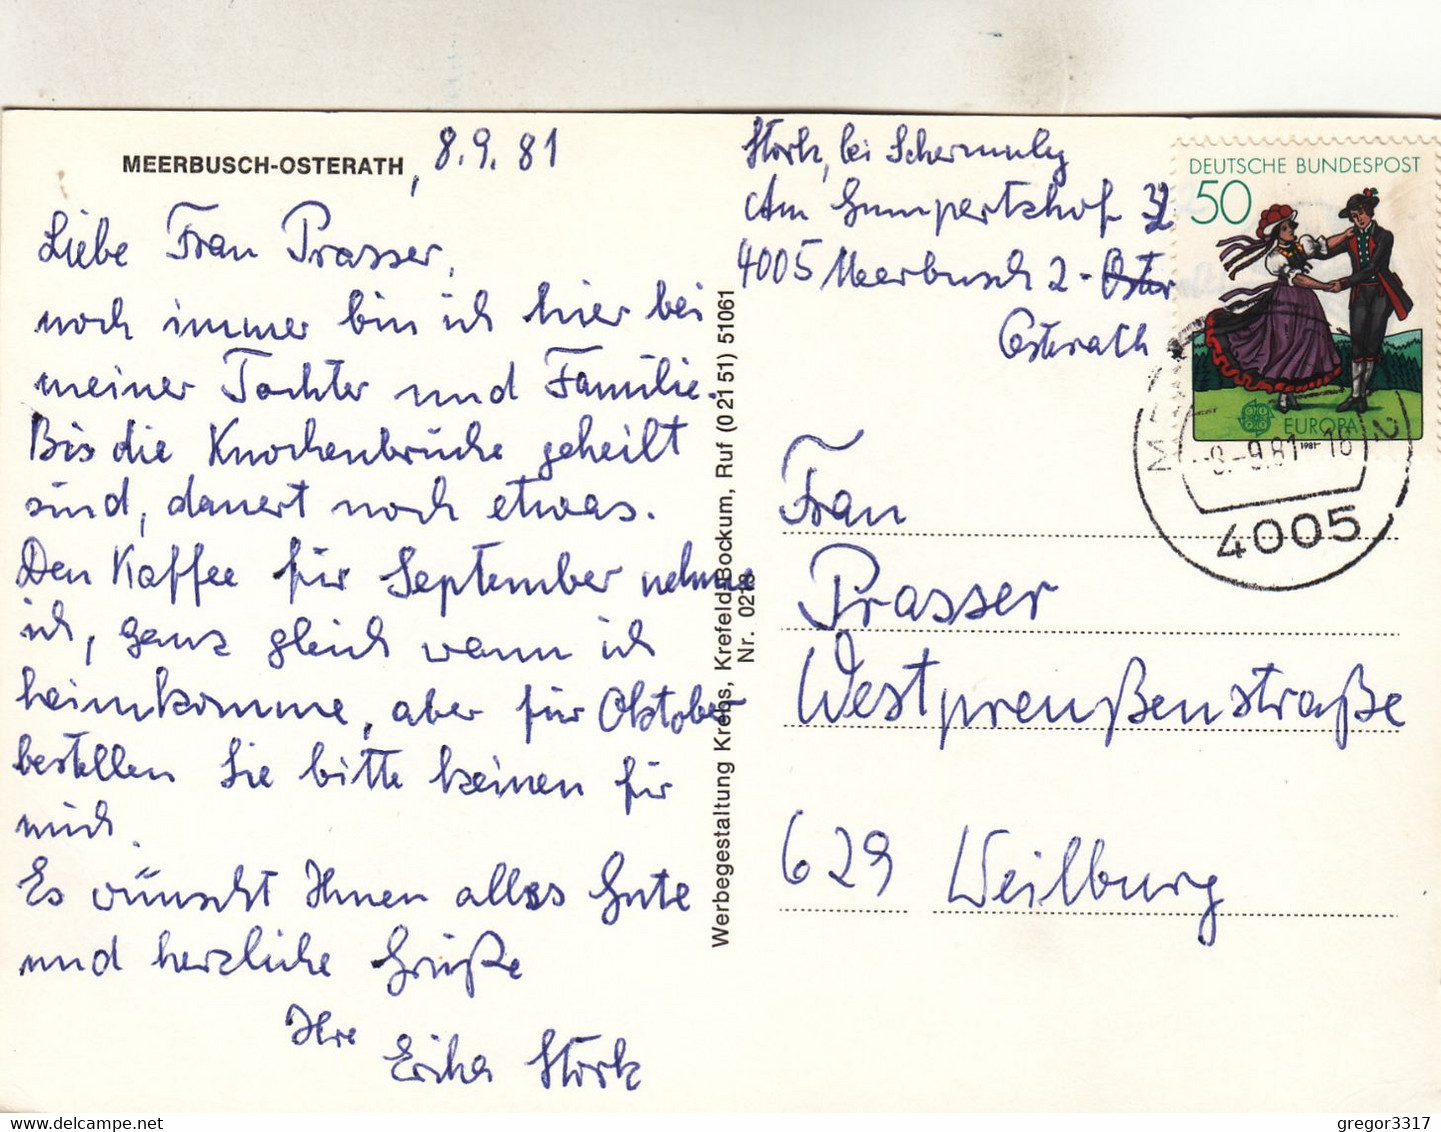 MEERBUSCH-OSTERATH, 8.9.81
Liebe Frau Prasser,
noch immer bin ich hier bei
meiner Tochter und Familie.
Bis die Knochenbrüche geheilt
sind, dauert noch etwas.
Den Kaffee für September nehme
ich, ganz gleich wann ich
heimkomme, aber für Oktober
bestellen Sie bitte keinen für
mich.
Es wünscht Ihnen alles Gute
und herzliche Grüße
Ihre
Erika Störk
Werbegestaltung Krebs, Krefeld-Bockum, Ruf (02151) 51061
Nr. 0218
Störk, bei Schermuly
Am Gumpertzhof 32
4005 Meerbusch 2 - Oster
Osterath
DEUTSCHE BUNDESPOST
50
EUROPA
CEPT
1981
-8.-9.81-16
2
4005
Frau
Prasser
Westpreußenstraße
629 Weilburg
gregor3317